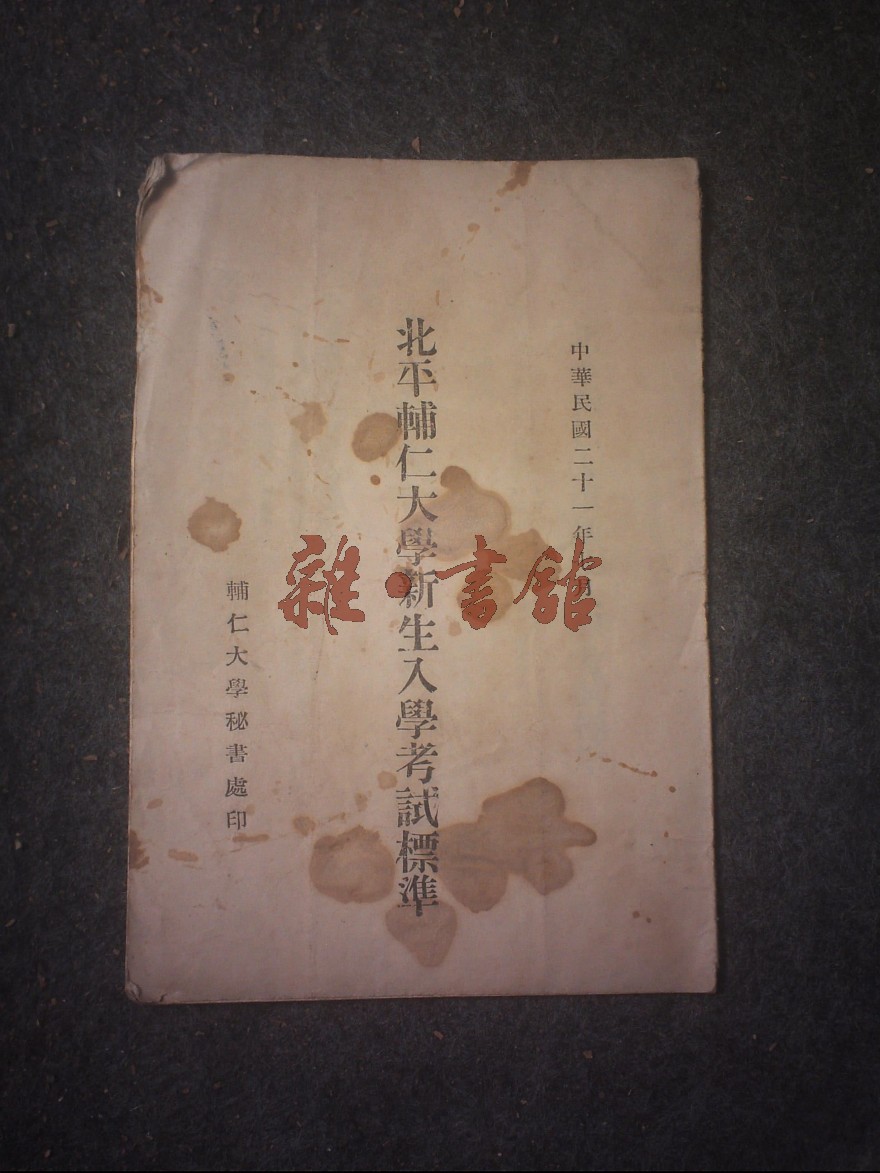 中華民國二十一年 月
北平輔仁大學新生入學考試標準
輔仁大學秘書處印
雜·書館